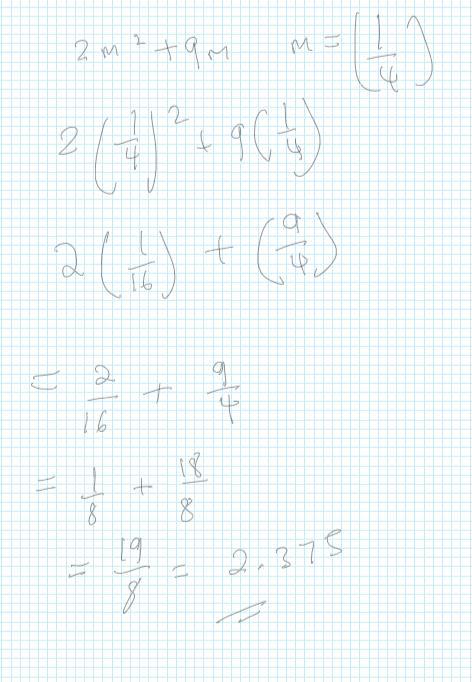 2m² + 9m    m = (1/4)
2(1/4)² + 9(1/4)
2(1/16) + (9/4)
= 2/16 + 9/4
= 1/8 + 18/8
= 19/8 = 2.375